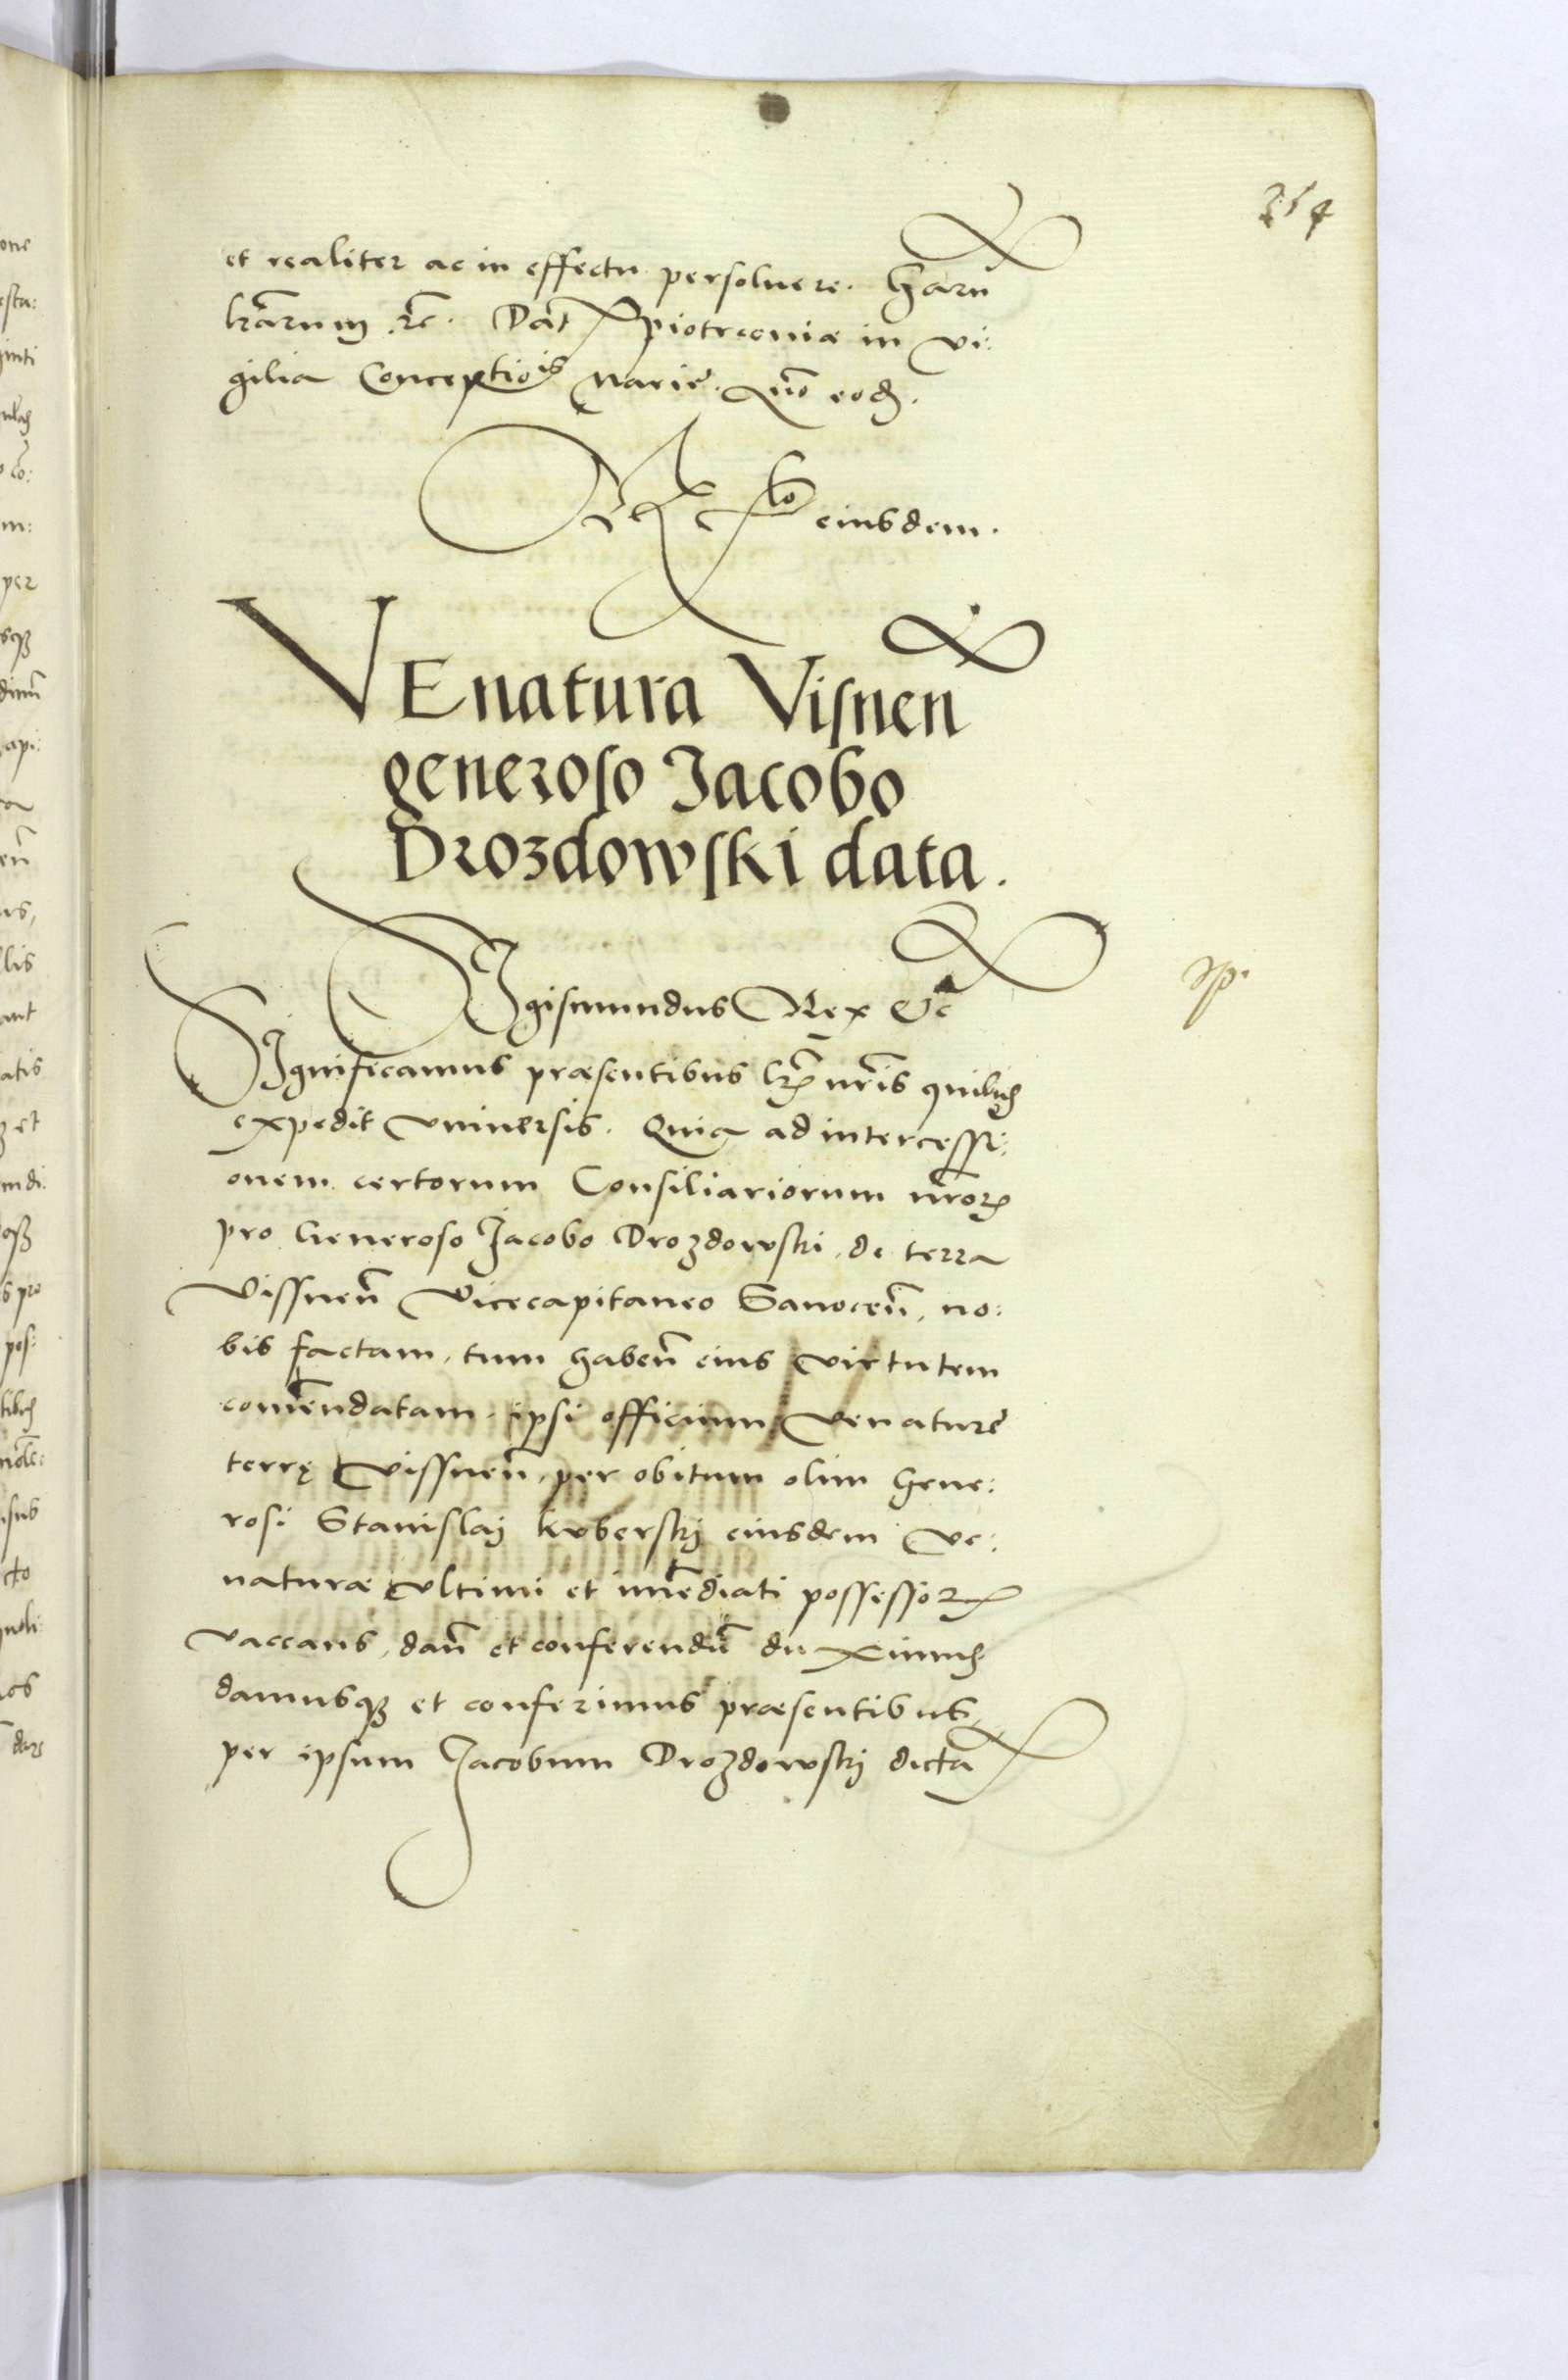 254
et realiter ac in effectu persoluere. Harũ
lrãrum rc̃. Dat̃ piotrcouiæ in vi:
gilia Conceptiois Marię. Anno eod.
Rel̃o eiusdem.
VEnatura Visnen̄
generoso Jacobo
Drozdowski data.
SIgismundus Rex Etc̃
SIgnificamus præsentibus lr̃is nr̃is quibus
expedit vniuersis. Quia ad intercessi:
onem certorum Consiliariorum nr̃orum
pro Generoso Jacobo Drozdowski de terra
Vissnen̄ Vicecapitaneo Sanocen̄, no:
bis factam, tum haben̄ eius virtutem
com̃endatam. ipsi officium venaturę
terrę Vissnen̄, per obitum olim Gene:
rosi Stanislaj Koberskj eiusdem ve:
naturæ vltimi et im̃ediati possessoris
vaccans, dan̄ et conferendũ duximus
damusque et conferimus præsentibus
per ipsum Jacobum Drozdowskj dicta